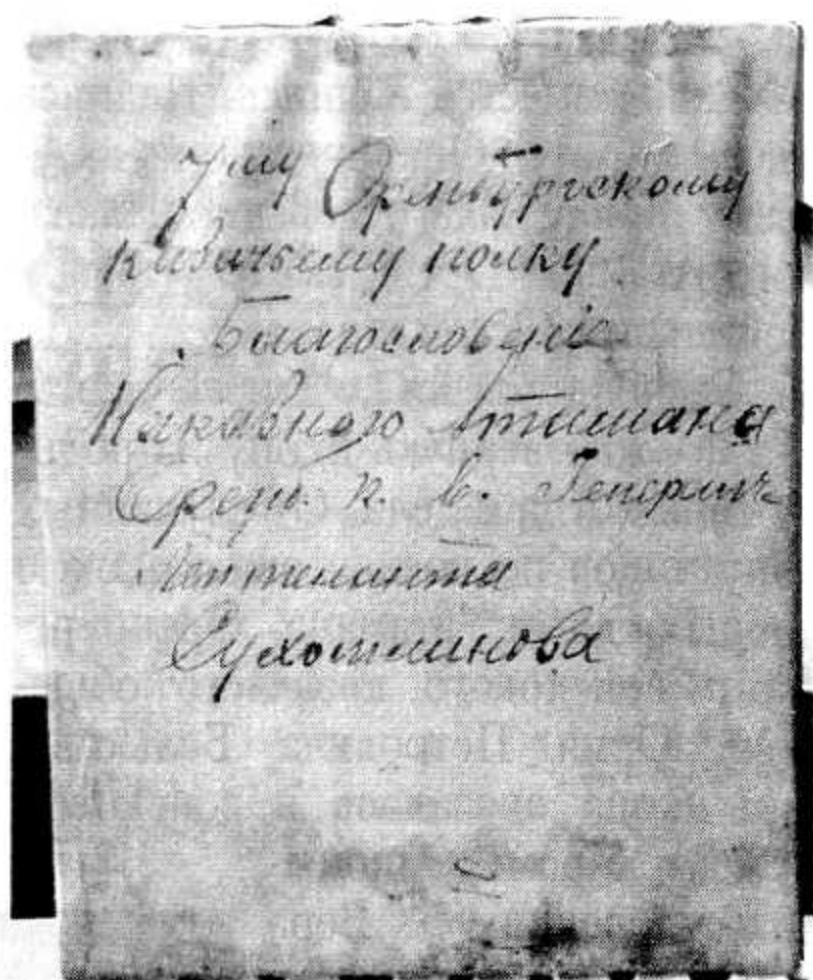 7му Оренбургскому
казачьему полку
Благословеніе
Наказного Атамана
Оренб. к. в. Генералъ
Лейтенанта
Сухомлинова